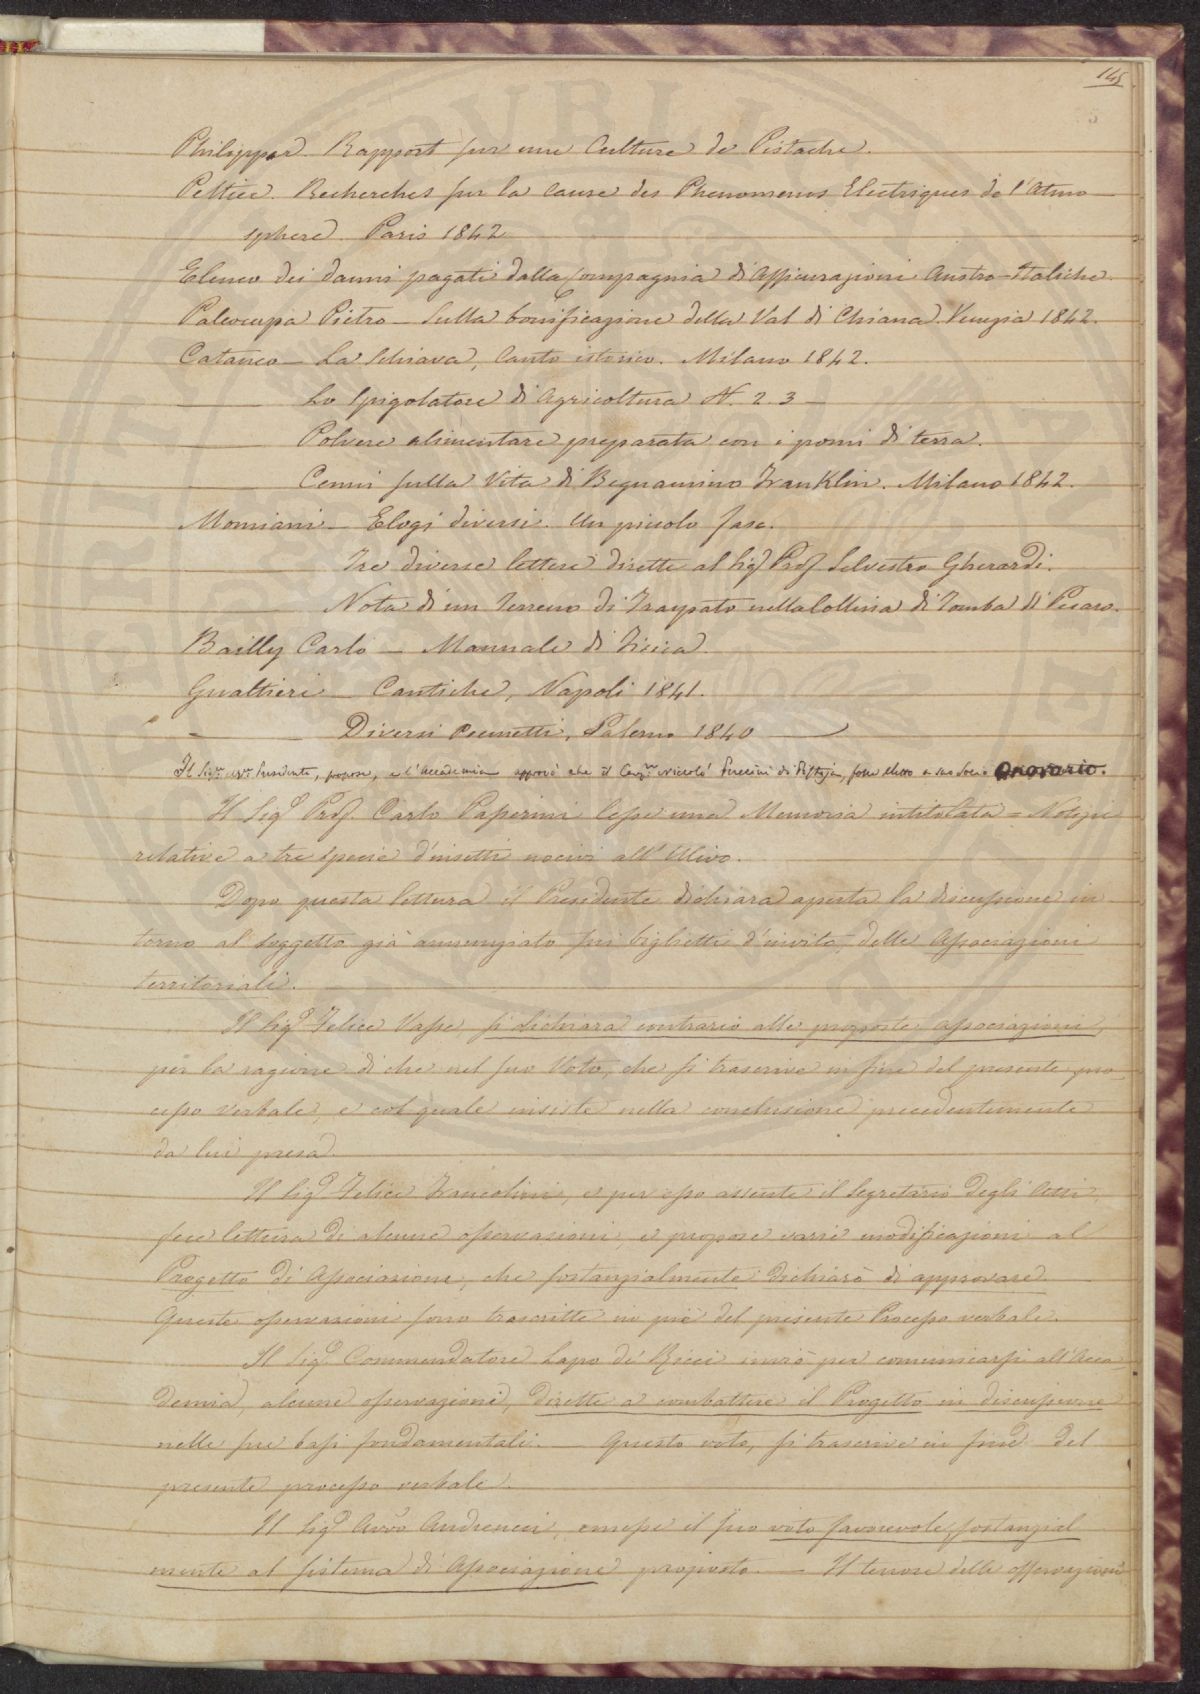 145
Philippar. Rapport sur une Culture de Pistache.
Peltier. Recherches sur la cause des Phenomenes Electriques de l'Atmo
sphere. Paris 1842
Elenco dei danni pagati dalla Compagnia di Assicurazioni Austro-Italiche.
Paleocapa Pietro — Sulla bonificazione della Val di Chiana. Venezia 1842.
Cataneo — La Schiava, Canto istorico. Milano 1842.
Lo Spigolatore di Agricoltura N. 2. 3 —
Polvere alimentare preparata con i pomi di terra.
Cenni sulla Vita di Beguamino Franklin. Milano 1842.
Momiani — Elogi diversi. Un piccolo fasc.
Tre diverse lettere dirette al Sig Prof Selvestro Gherardi.
Nota di un Terreno di Traspato nella Collina di Tomba di Pesaro.
Bailly Carlo — Manuale di Fisica.
Gualtieri — Cantiche, Napoli 1841.
Diversi Poemetti, Palermo 1840 —
Il Sig.re Presidente, propose, e l'Accademia approvò che il Cav.re Niccolò Puccini di Pistoja, fosse eletto a suo Socio Onorario.
Il Sigr Prof. Carlo Passerini lesse una Memoria intitolata = Notizie
relative a tre specie d'insetti nocivi all'Ulivo.
Dopo questa lettura il Presidente dichiara aperta la discussione in
torno al soggetto già annunziato sui biglietti d'invito, delle Associazioni
territoriali.
Il Sigr Felice Vasse, si dichiara contrario alle proposte associazioni,
per la ragione di che nel suo Voto, che si trascrive in fine del presente pro
cesso verbale, e col quale insiste nella conclusione precedentemente
da lui presa.
Il Sigr Felice Francolini, e per esso assente il Segretario degli Atti,
fece lettura di alcune osservazioni, e propose varie modificazioni al
Progetto di Associazione, che sostanzialmente dichiarò di approvare.
Queste osservazioni sono trascritte in piè del presente Processo verbale.
Il Sigr Commendatore Lapo de' Ricci inviò per comunicarsi all'Acca
demia, alcune osservazioni, dirette a combattere il Progetto in discussione
nelle sue basi fondamentali. — Questo voto, si trascrive in fine del
presente processo verbale.
Il Sigr Avvo Andreucci, emesse il suo voto favorevole, sostanzial
mente al sistema di Associazione proposto. — Il tenore delle osservazioni